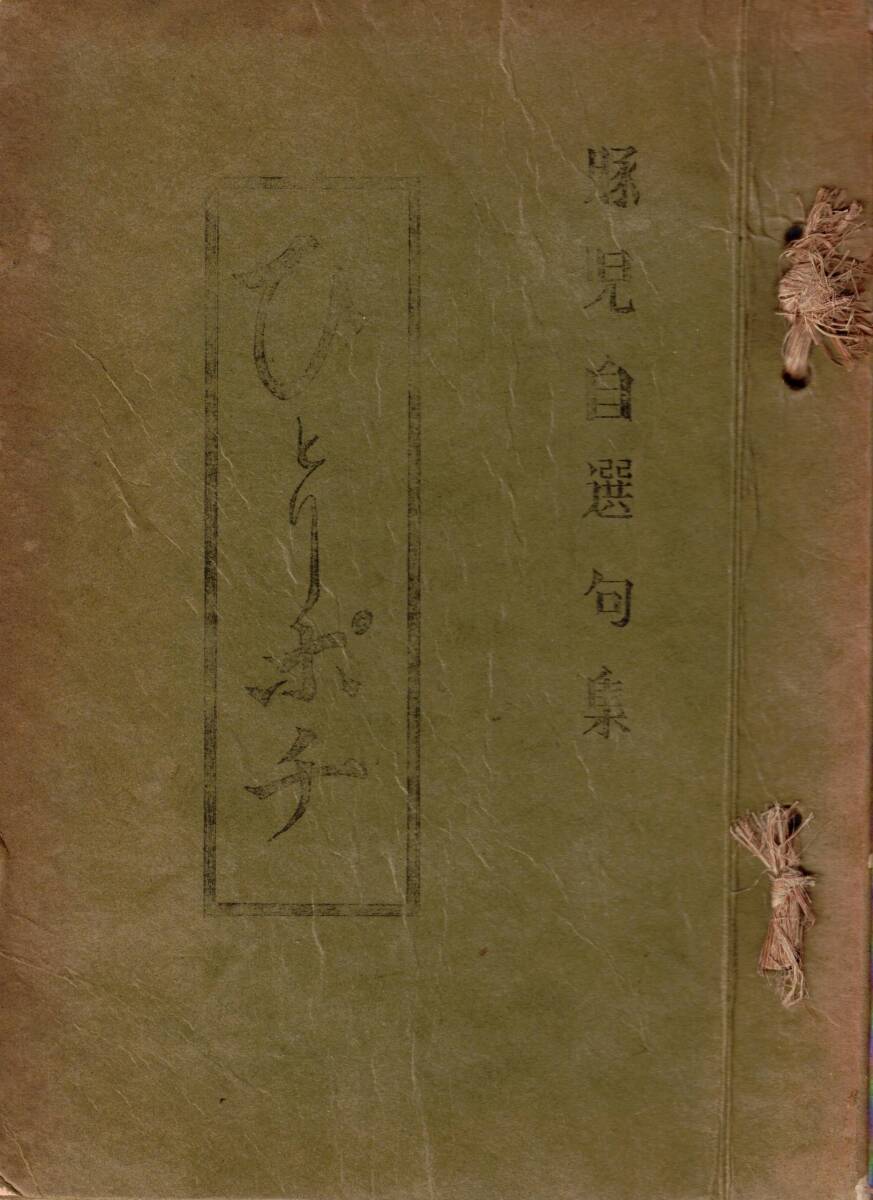 豚児自選句集
ひとりポチ